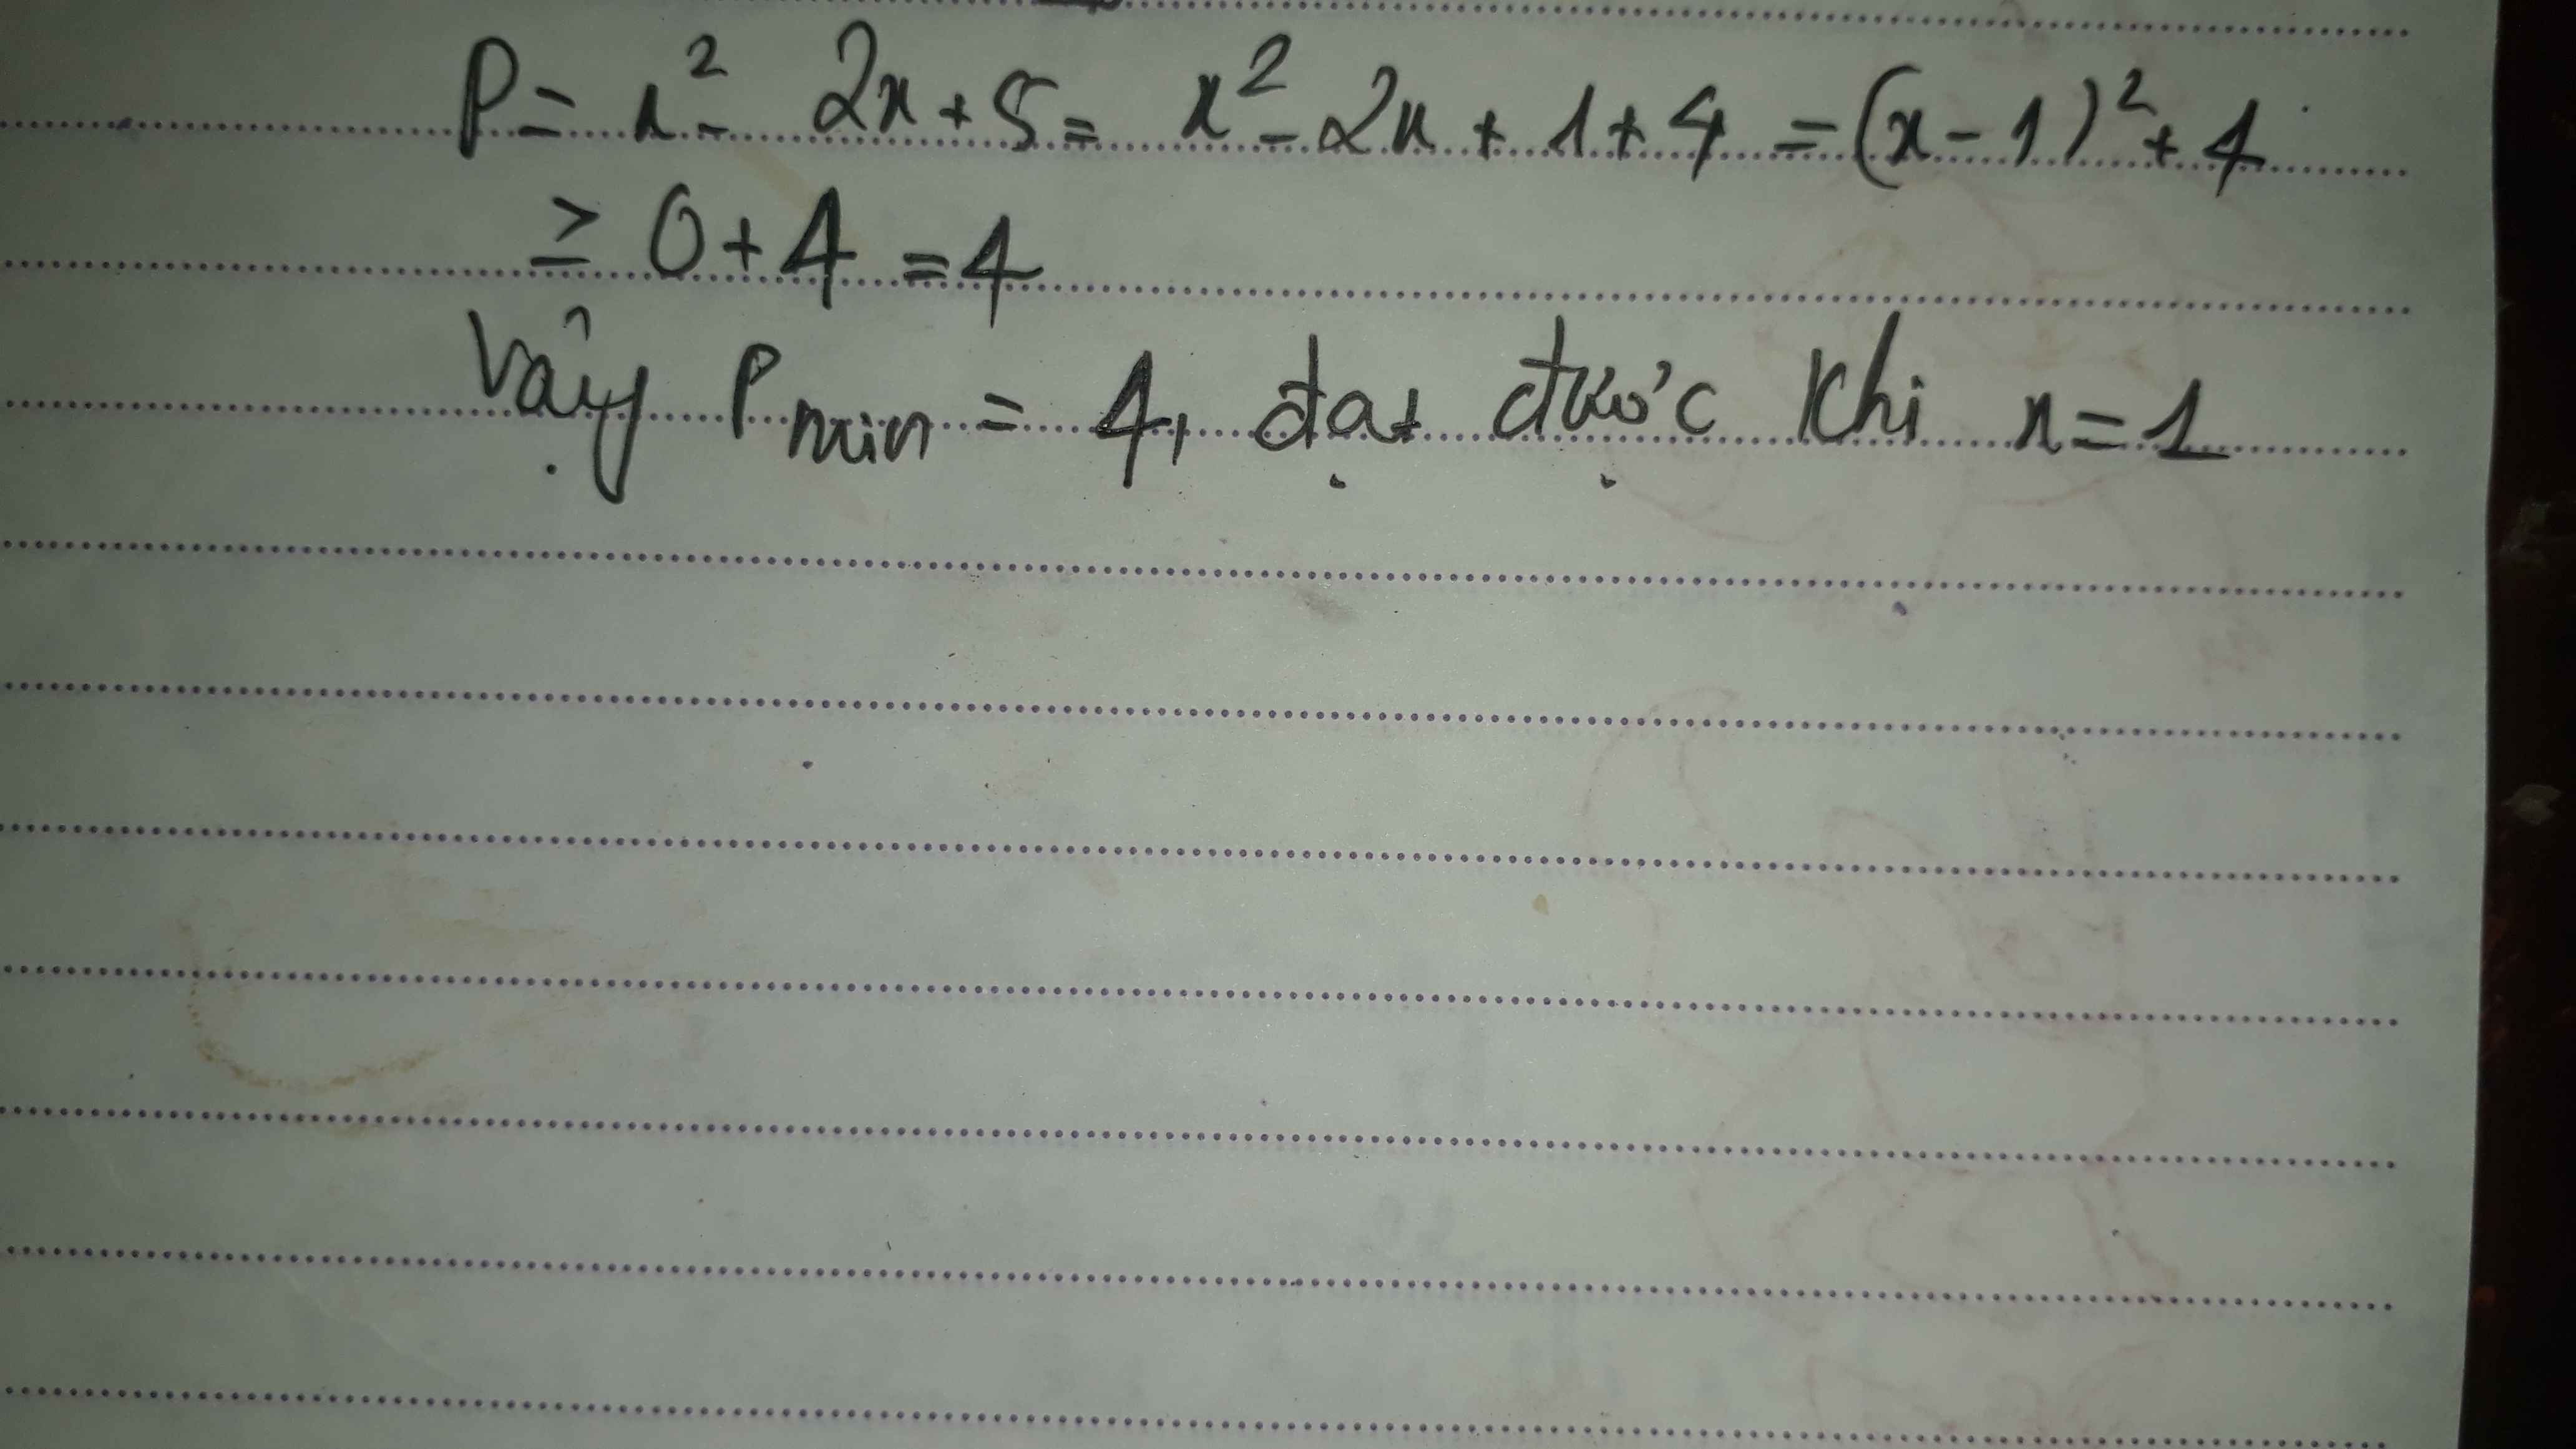 P = x² - 2x + 5 = x² - 2x + 1 + 4 = (x - 1)² + 4
≥ 0 + 4 = 4
Vậy Pmin = 4, đạt được khi x = 1